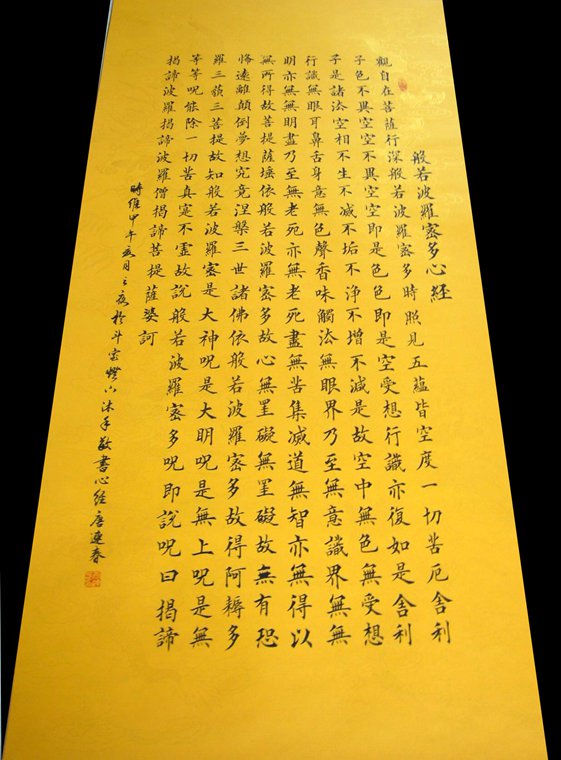 般若波羅密多心経
觀自在菩薩行深般若波羅密多時照見五蘊皆空度一切苦厄舍利
子色不異空空不異空空即是色色即是空受想行識亦復如是舍利
子是諸法空相不生不减不垢不浄不增不减是故空中無色無受想
行識無眼耳鼻舌身意無色聲香味觸法無眼界乃至無意識界無無
明亦無無明盡乃至無老死亦無老死盡無苦集减道無智亦無得以
無所得故菩提薩埵依般若波羅密多故心無罣礙無罣礙故無有恐
怖遠離顛倒夢想究竟涅槃三世諸佛依般若波羅密多故得阿耨多
羅三藐三菩提故知般若波羅密是大神呪是大明呪是無上呪是無
等等呪能除一切苦真寔不虛故說般若波羅密多呪即說呪曰揭諦
揭諦波羅揭諦波羅僧揭諦菩提薩婆訶
時維甲午亥月於斗室沐手敬書心經唐連春